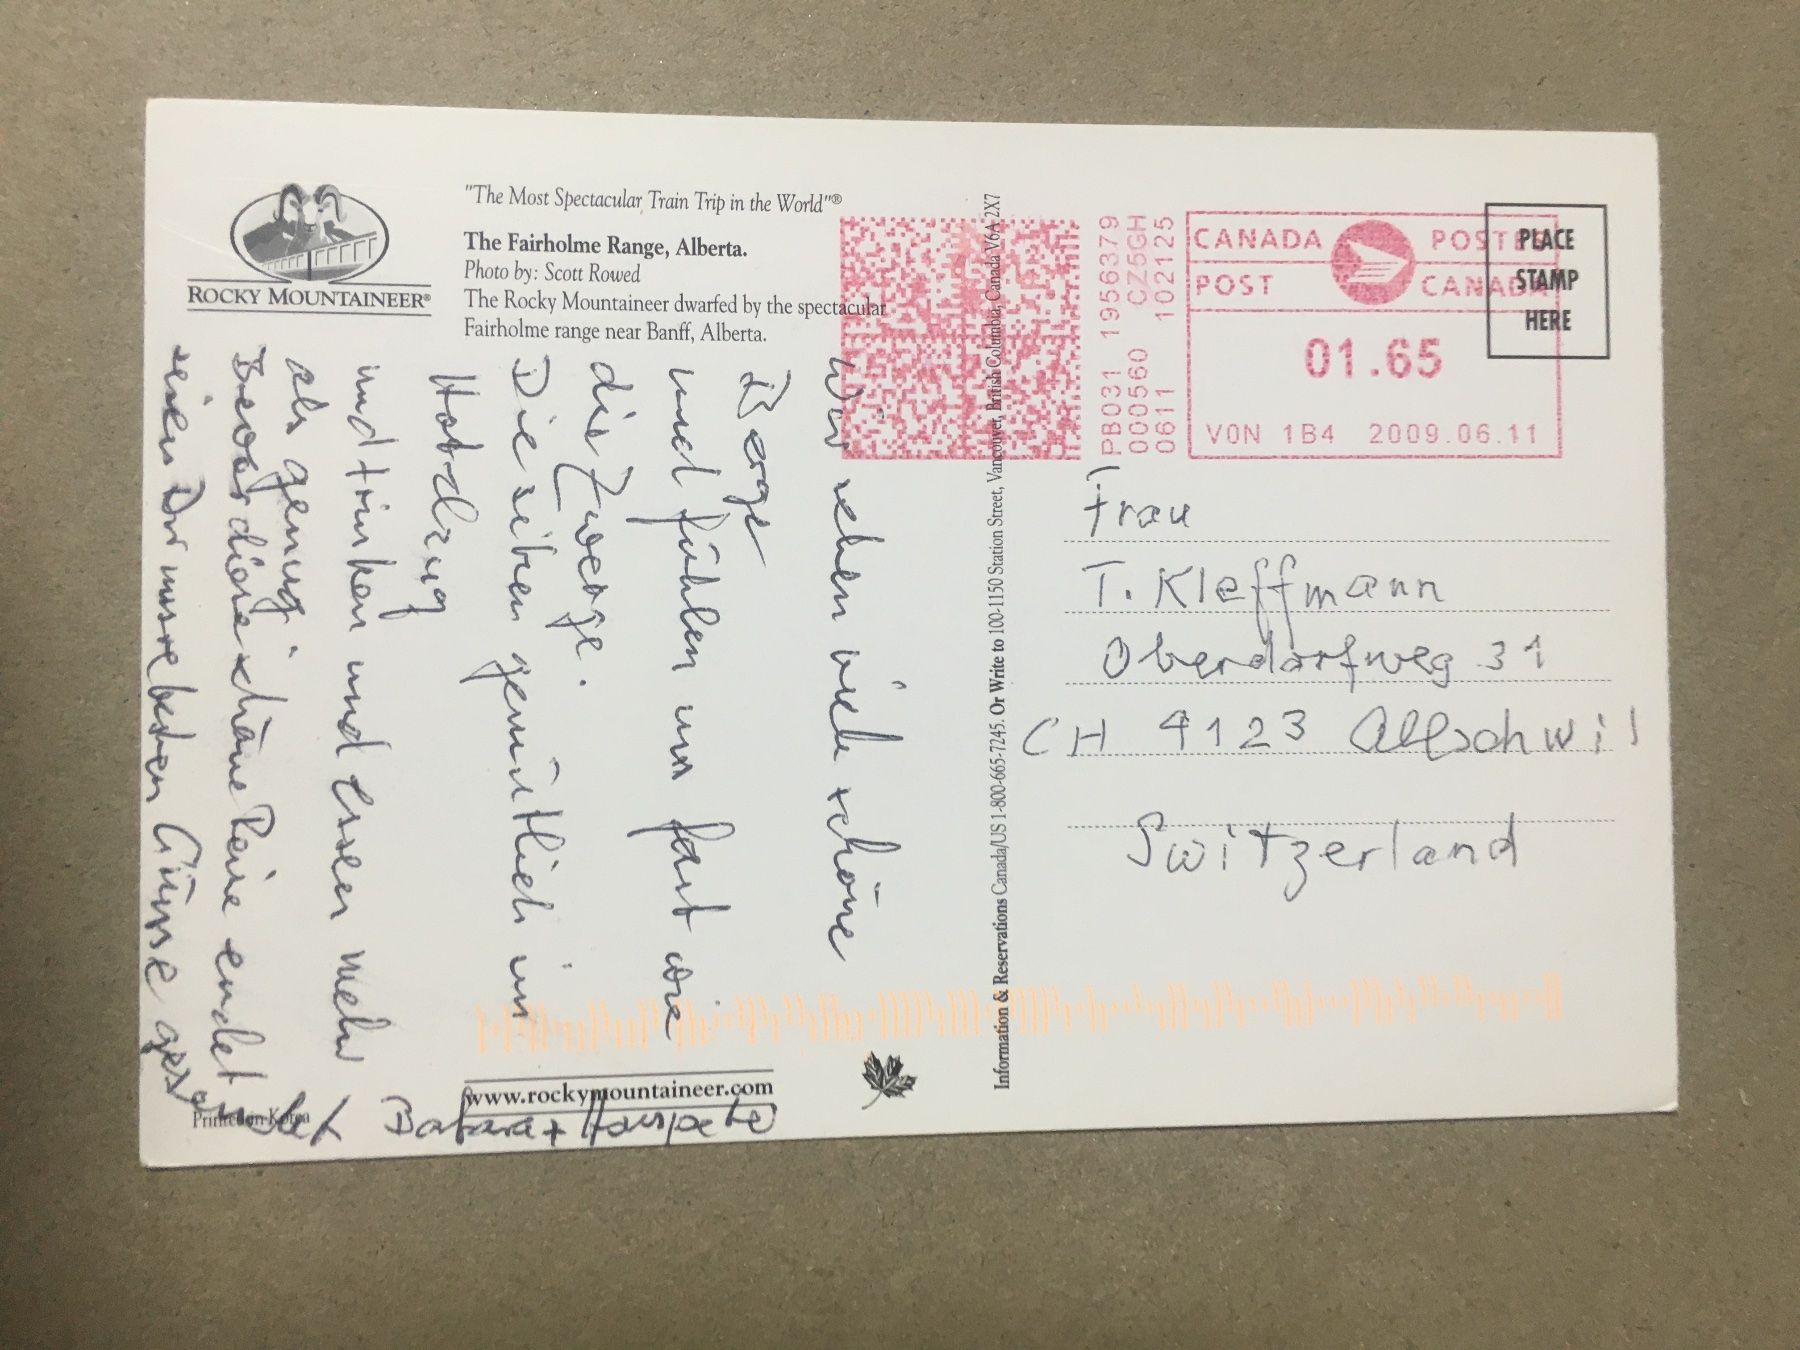 ROCKY MOUNTAINEER®
"The Most Spectacular Train Trip in the World"®
The Fairholme Range, Alberta.
Photo by: Scott Rowed
The Rocky Mountaineer dwarfed by the spectacular
Fairholme range near Banff, Alberta.
Wir sehen viele schöne
Berge
und fühlen uns fast wie
die Zwerge.
Die sitzen gemütlich im
Hotelzug
und trinken und essen mehr
als genug.
Bevor diese schöne Reise endet
seien Dir unsre besten Grüsse gesendet
Barbara + Hanspeter
www.rockymountaineer.com
Printed in Korea
Information & Reservations Canada/US 1-800-665-7245. Or Write to 100-1150 Station Street, Vancouver, British Columbia, Canada V6A 2X7
PB031 1956379
000560 CZ5GH
0611 102125
CANADA POSTES
POST CANADA
01.65
V0N 1B4 2009.06.11
PLACE
STAMP
HERE
Frau
T. Kleffmann
Oberdorfweg 31
CH 4123 Allschwil
Switzerland